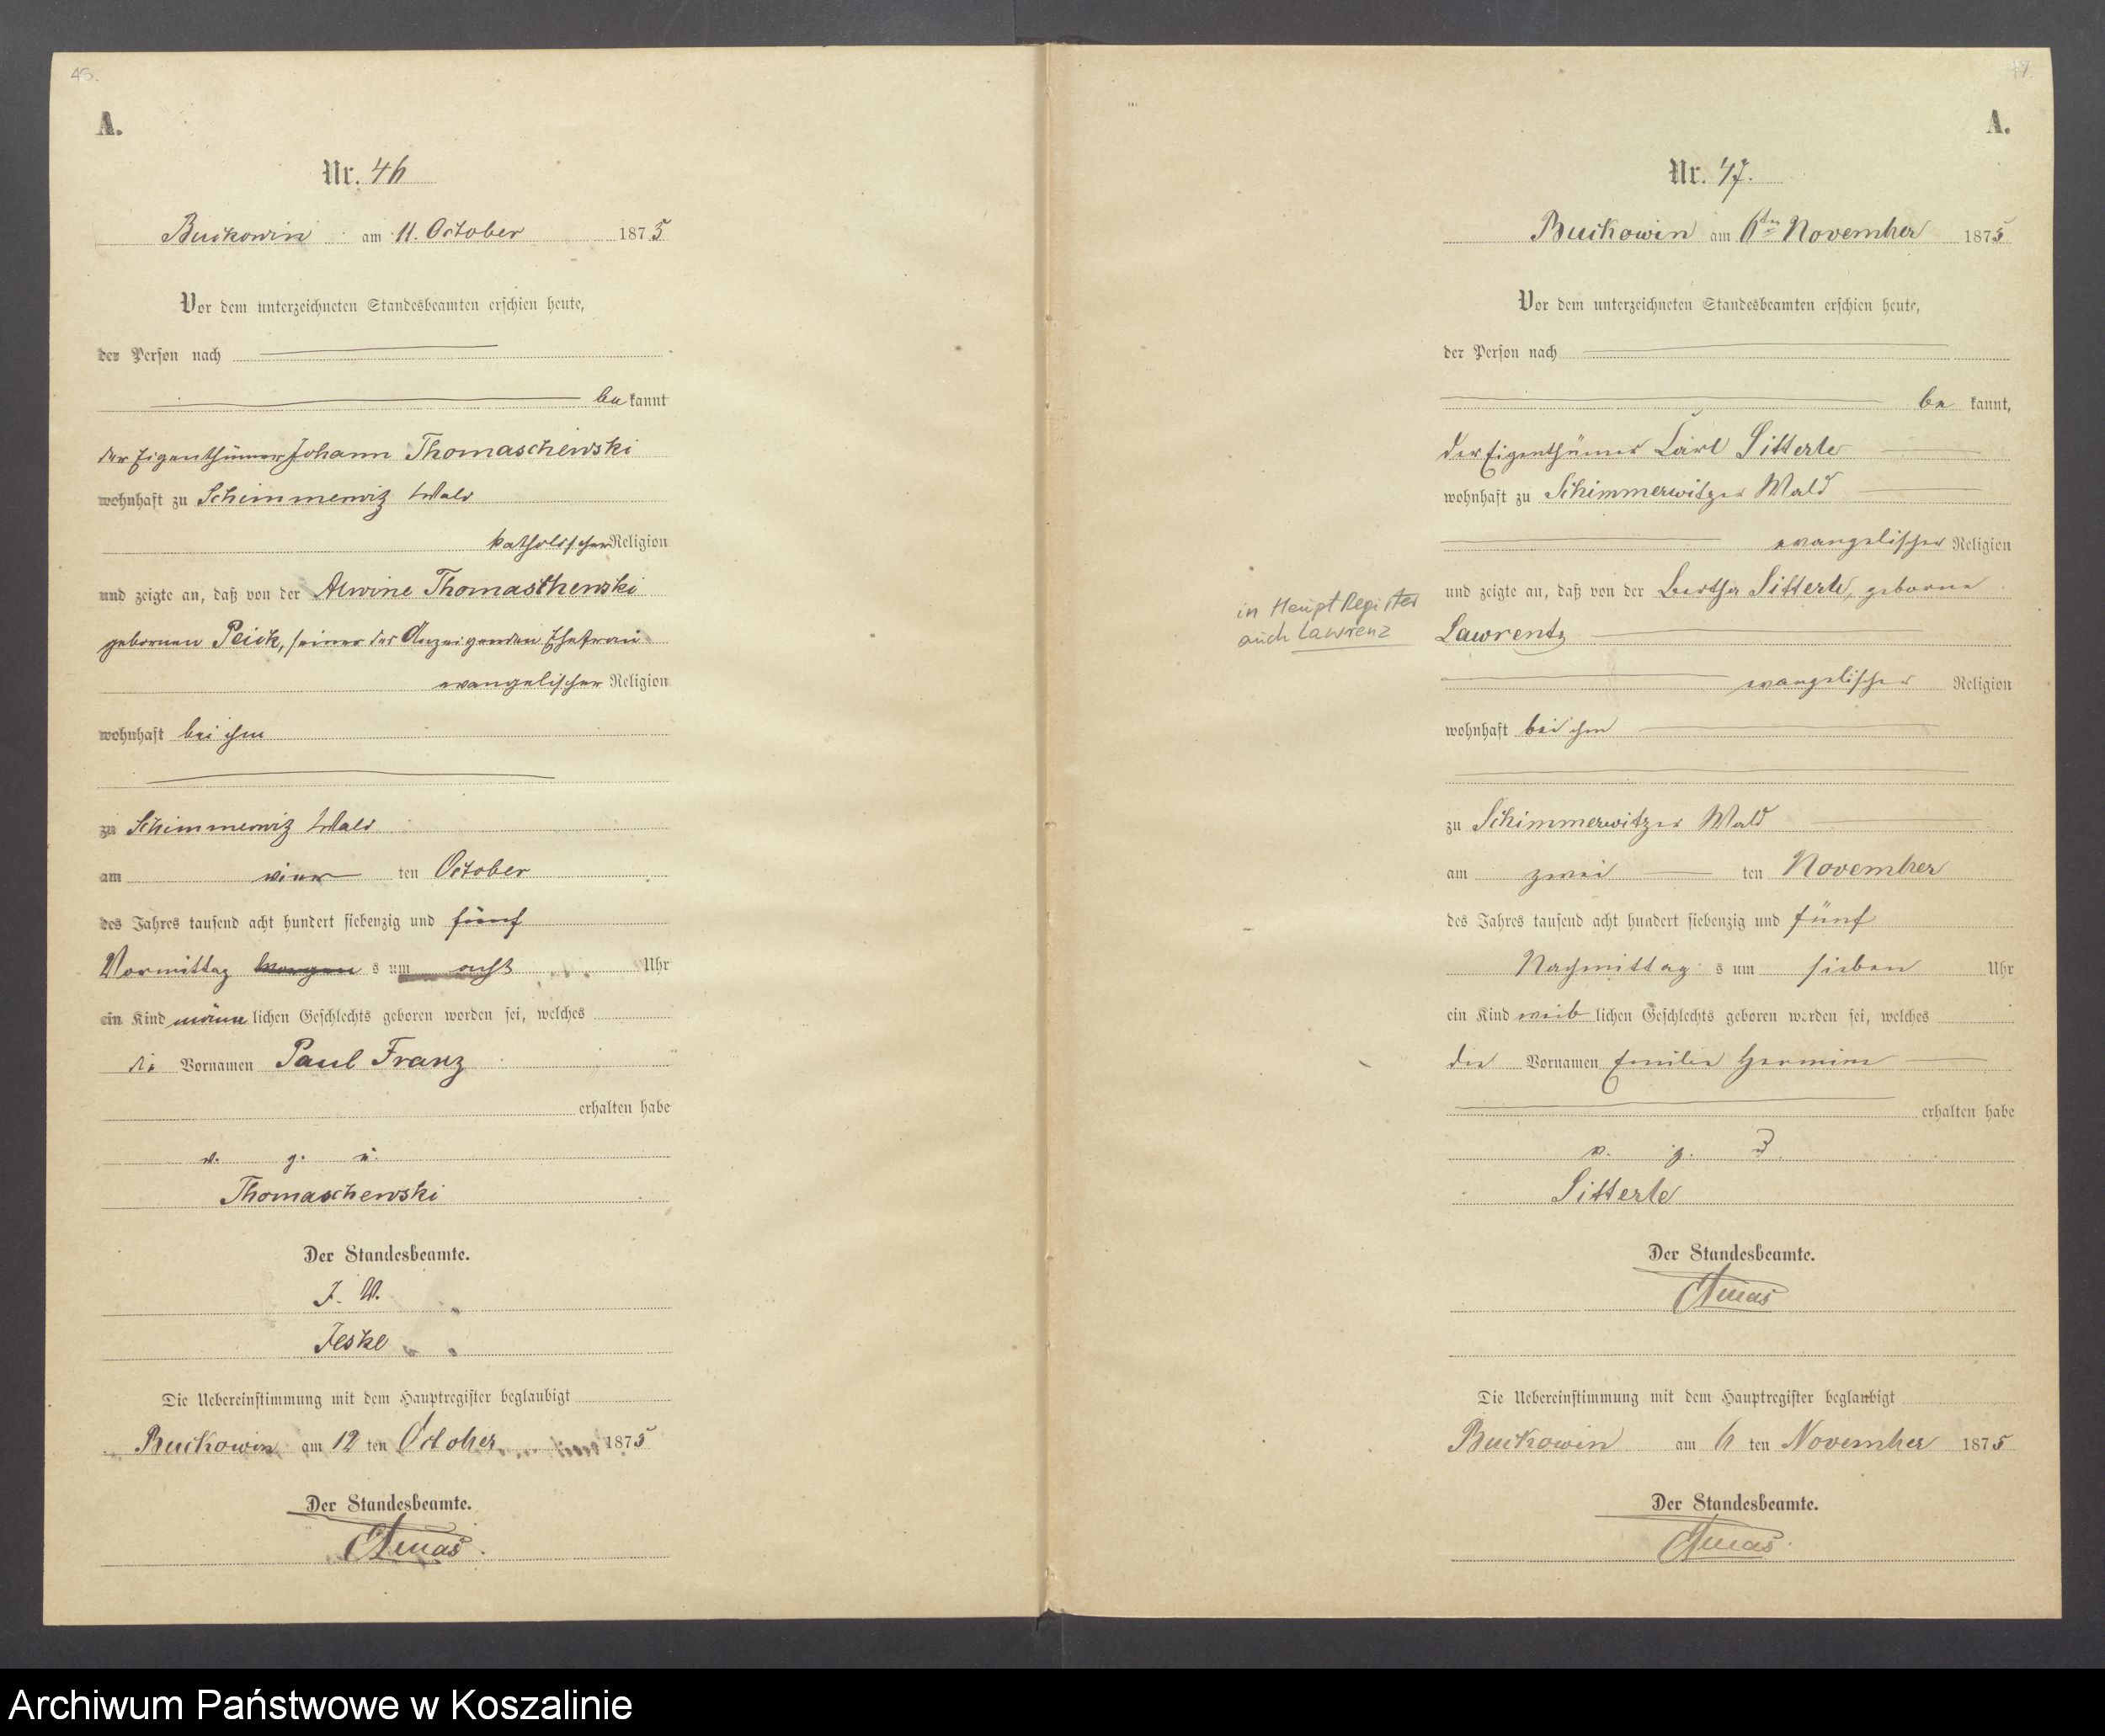 46.
A.
Nr. 46
Buckowin am 11. October 1875
Vor dem unterzeichneten Standesbeamten erschien heute,
der Person nach
be kannt
der Eigenthümer Johann Thomaschewski
wohnhaft zu Schimmerwitz Wald
katholischer Religion
und zeigte an, daß von der Alwine Thomaschewski
gebornen Peick, seiner des Anzeigenden Ehefrau
evangelischer Religion
wohnhaft bei ihm
zu Schimmerwitz Wald
am vier ten October
des Jahres tausend acht hundert siebenzig und fünf
Vormittag Morgen s um acht Uhr
ein Kind männ lichen Geschlechts geboren worden sei, welches
die Vornamen Paul Franz
erhalten habe
v. g. u.
Thomaschewski
Der Standesbeamte.
J. V.
Jeske
Die Uebereinstimmung mit dem Hauptregister beglaubigt
Buckowin am 12 ten October 1875
Der Standesbeamte.
47.
A.
Nr. 47.
Buckowin am 6ten November 1875
Vor dem unterzeichneten Standesbeamten erschien heute,
der Person nach
be kannt,
der Eigenthümer Carl Sitterle
wohnhaft zu Schimmerwitzer Wald
evangelischer Religion
und zeigte an, daß von der Bertha Sitterle, geborne
Lawrentz
in Hauptregister
auch Lawrenz
evangelischer Religion
wohnhaft bei ihm
zu Schimmerwitzer Wald
am zwei ten November
des Jahres tausend acht hundert siebenzig und fünf
Nachmittag s um sieben Uhr
ein Kind weib lichen Geschlechts geboren worden sei, welches
die Vornamen Emilie Hermine
erhalten habe
v. g. u.
Sitterle
Der Standesbeamte.
Die Uebereinstimmung mit dem Hauptregister beglaubigt
Buckowin am 6 ten November 1875
Der Standesbeamte.
Archiwum Państwowe w Koszalinie